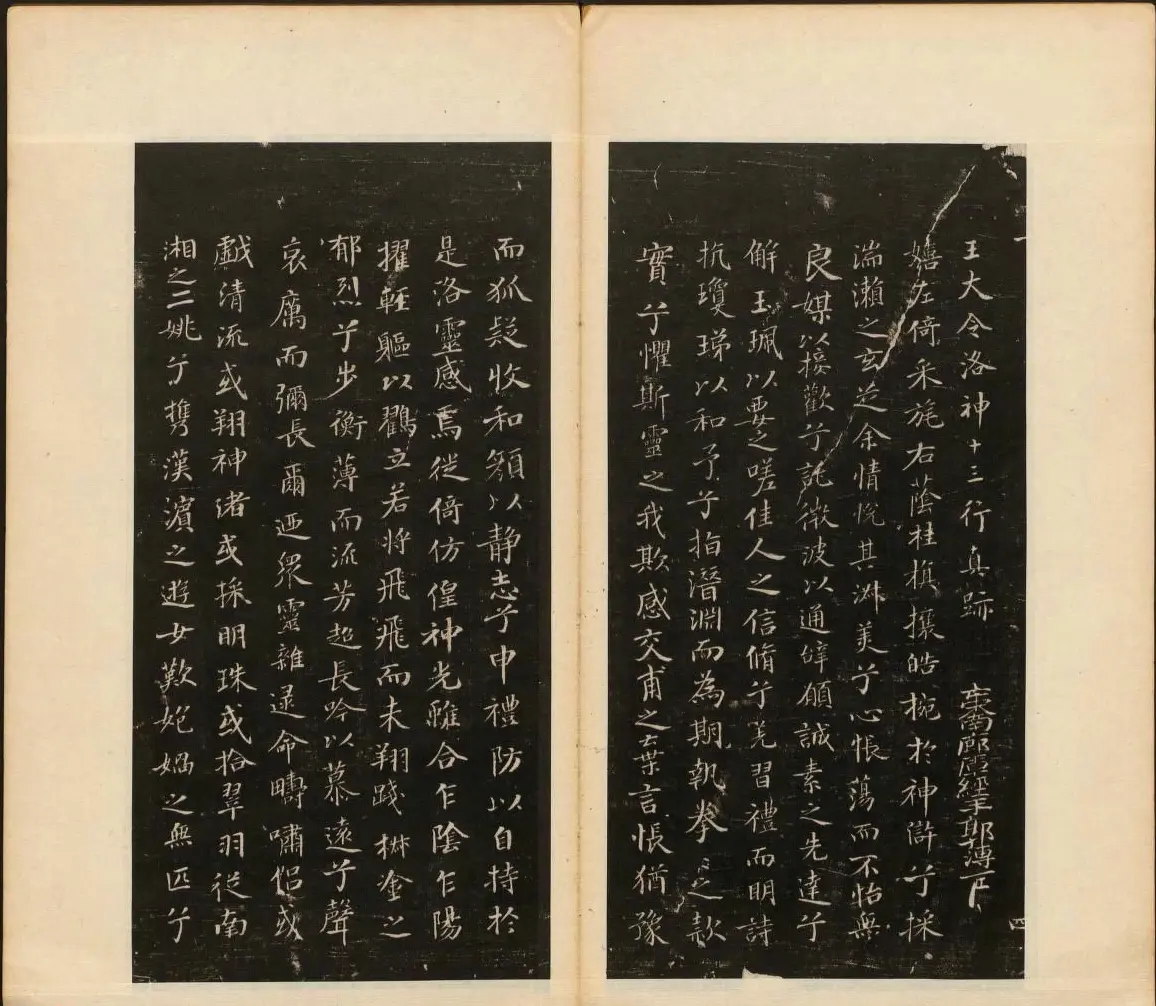 王大令洛神十三行真跡
嬉左倚采旄右蔭桂旗攘皓捥於神滸兮採
湍瀨之玄芝余情悅其淑美兮心悵蕩而不怡無
良媒以接歡兮託微波以通辭願誠素之先達兮
解玉珮以要之嗟佳人之信脩兮羌習禮而明詩
抗瓊珶以和予兮指潛淵而為期執拳〻之款
實兮懼斯靈之我欺感交甫之棄言悵猶豫
四
而狐疑收和顏以靜志兮申禮防以自持於
是洛靈感焉徙倚仿偟神光離合乍陰乍陽
擢輕軀以鶴立若將飛飛而未翔踐椒塗之
郁烈兮步衡薄而流芳超長吟以慕遠兮聲
哀厲而彌長爾迺眾靈雜遝命疇嘯侶或
戲清流或翔神渚或採明珠或拾翠羽從南
湘之二姚兮攜漢濱之遊女歎媧之無匹兮